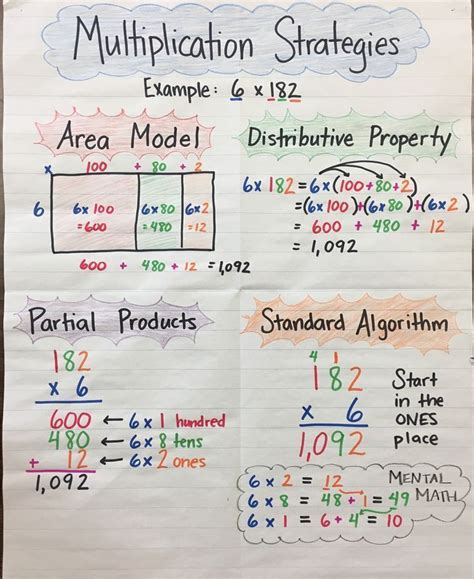 Multiplication Strategies
Example: 6 x 182
Area Model
x 100 + 80 + 2
6
6x100 =600
6x80 =480
6x2 =12
600 + 480 + 12 = 1,092
Distributive Property
6x 182 = 6x(100+80+2)
=(6x100)+(6x80)+(6x2)
= 600 + 480 + 12
= 1,092
Partial Products
182
x 6
600 ← 6 x 1 hundred
480 ← 6 x 8 tens
+ 12 ← 6 x 2 ones
1,092
Standard Algorithm
4 1
182
x 6
1,092
Start
in the
ONES
place
MENTAL
MATH
6 x 2 = 12
6 x 8 = 48 + 1 = 49
6 x 1 = 6 + 4 = 10